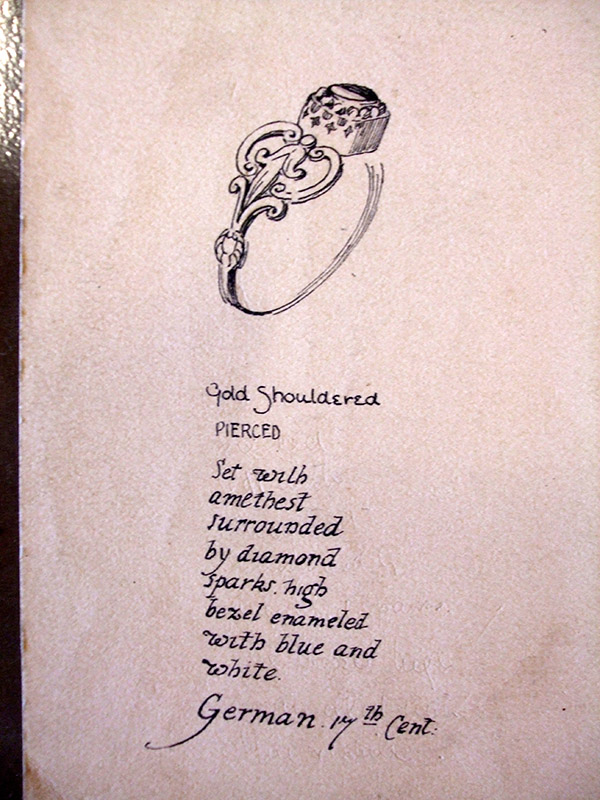 Gold Shouldered
PIERCED
Set with
amethest
surrounded
by diamond
sparks. high
bezel enameled
with blue and
white.
German. 17th Cent: